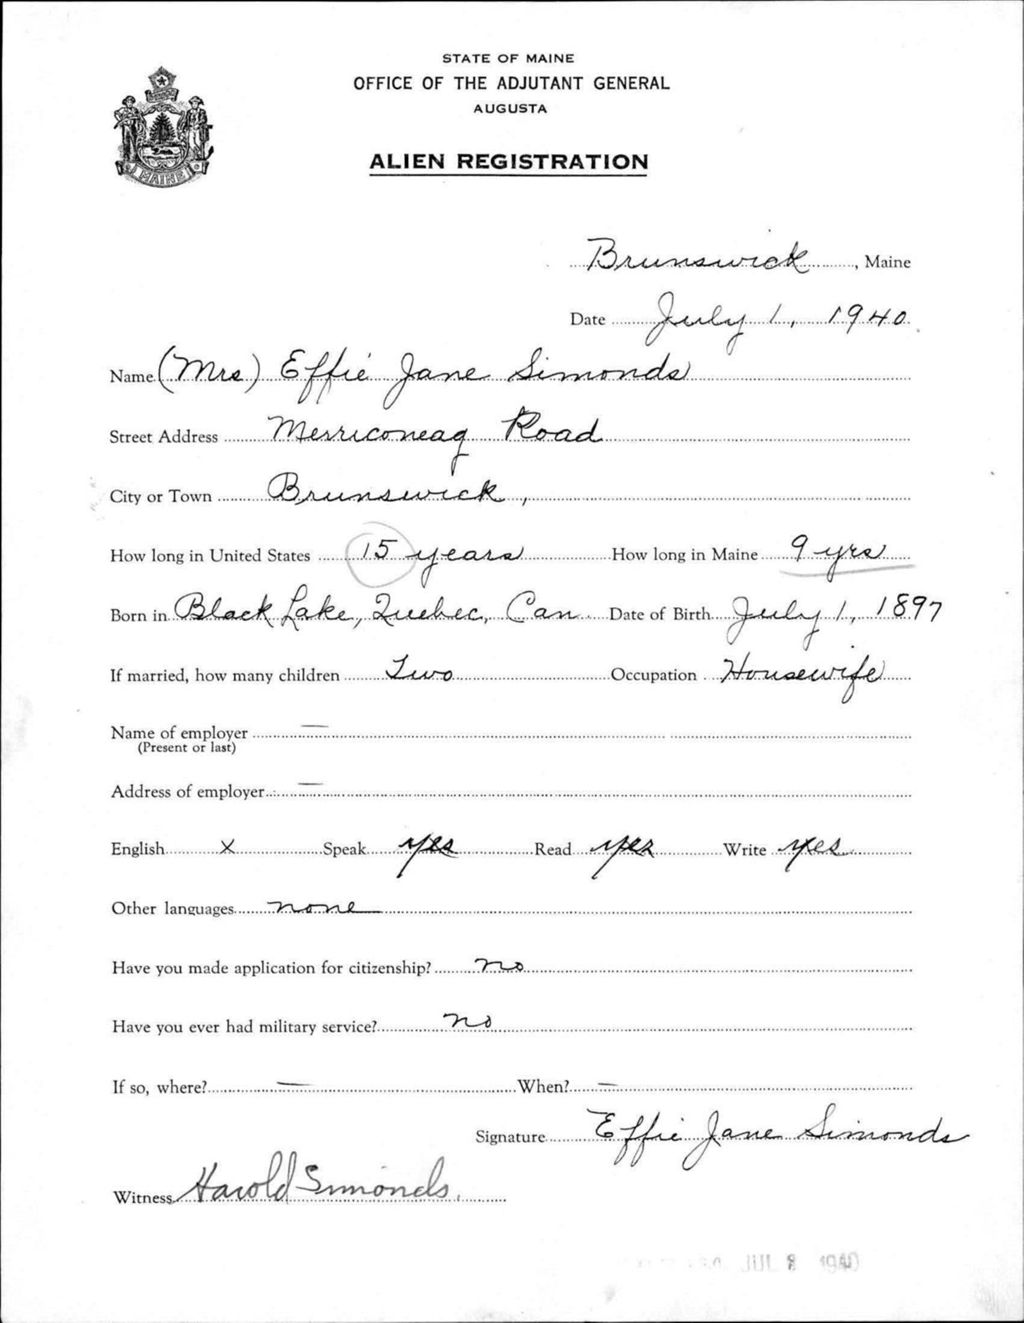 STATE OF MAINE
OFFICE OF THE ADJUTANT GENERAL
AUGUSTA
MAINE
ALIEN REGISTRATION
Brunswick, Maine
Date July 1, 1940
Name (Mrs) Effie Jane Simonds
Street Address Merriconeag Road
City or Town Brunswick,
How long in United States 15 years How long in Maine 9 yrs
Born in Black Lake, Quebec, Can Date of Birth July 1, 1897
If married, how many children Two Occupation Housewife
Name of employer —
(Present or last)
Address of employer —
English X Speak yes Read yes Write yes
Other languages none
Have you made application for citizenship? no
Have you ever had military service? no
If so, where? — When? —
Signature Effie Jane Simonds
Witness Harold Simonds
JUL 1940